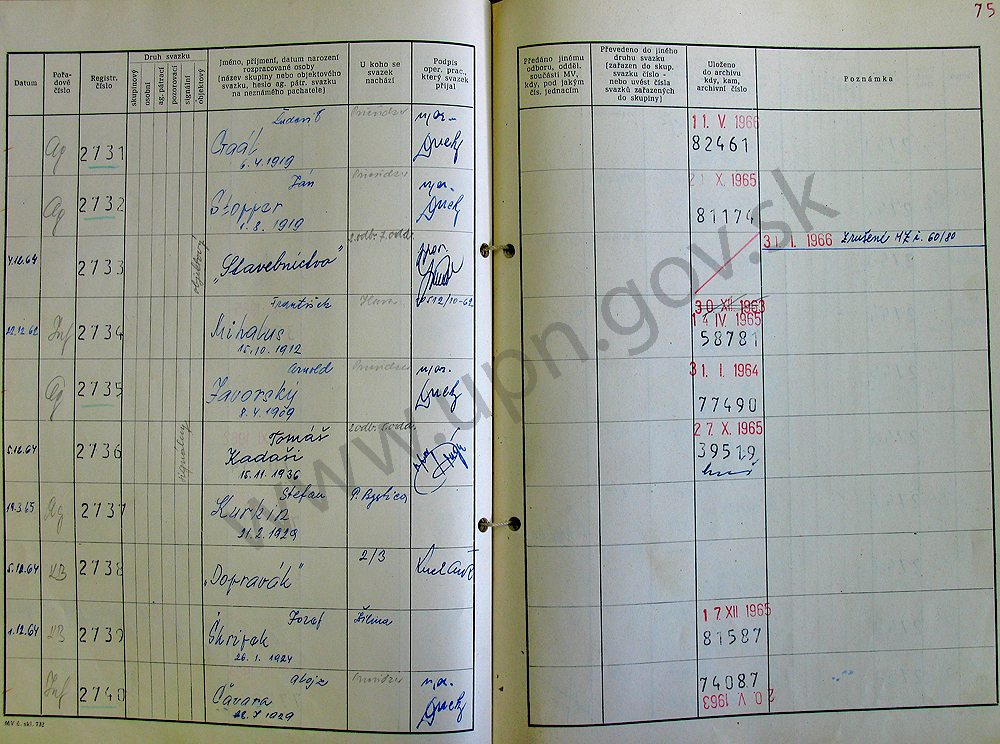 75
Datum
Pořadové číslo
Registr. číslo
Druh svazku
skupinový
osobní
ag. pátrací
pozorovací
signální
objektový
Jméno, příjmení, datum narození
rozpracované osoby
(název skupiny nebo objektového
svazku, heslo ag. pátr. svazku
na neznámého pachatele)
U koho se
svazek
nachází
Podpis
oper. prac.,
který svazek
přijal
Předáno jinému
odboru, odděl.
součásti MV,
kdy, pod jakým
čís. jednacím
Převedeno do jiného
druhu svazku
(zařazen do skup.
svazku číslo -
nebo uvést čísla
svazků zařazených
do skupiny)
Uloženo
do archivu
kdy, kam,
archivní číslo
Poznámka
Ag 2731 Ľudovít
Gaál
6.4.1919
11. V. 1966
82461
Ag 2732 Ján
Stopper
1.8.1919
21 X. 1965
81174
4.12.64 2733 objektový "Stavebníctvo" 2.odb. 7.odd.
31. I. 1966 Zrušené
22.12.62 Inf 2734 František
Mihalus
15.10.1912
30 XII. 1963
14 IV. 1965
58781
Ag 2735 Arnold
Javorský
8.4.1909
31. I. 1964
77490
5.12.64 2736 signálny Tomáš
Kadaši
15.11.1936
27 X. 1965
39519
19.3.65 Ag 2737 Štefan
Kurkin
P. Bystrica
21.2.1929
5.12.64 KB 2738 "Dopravák" 2/3
1.12.64 KB 2739 Jozef
Škrifek
Žilina
26.1.1924
17 XII. 1965
81587
Inf 2740 Alojz
Čavara
74087
20. V. 1963
MV č. skl. 732
www.upn.gov.sk